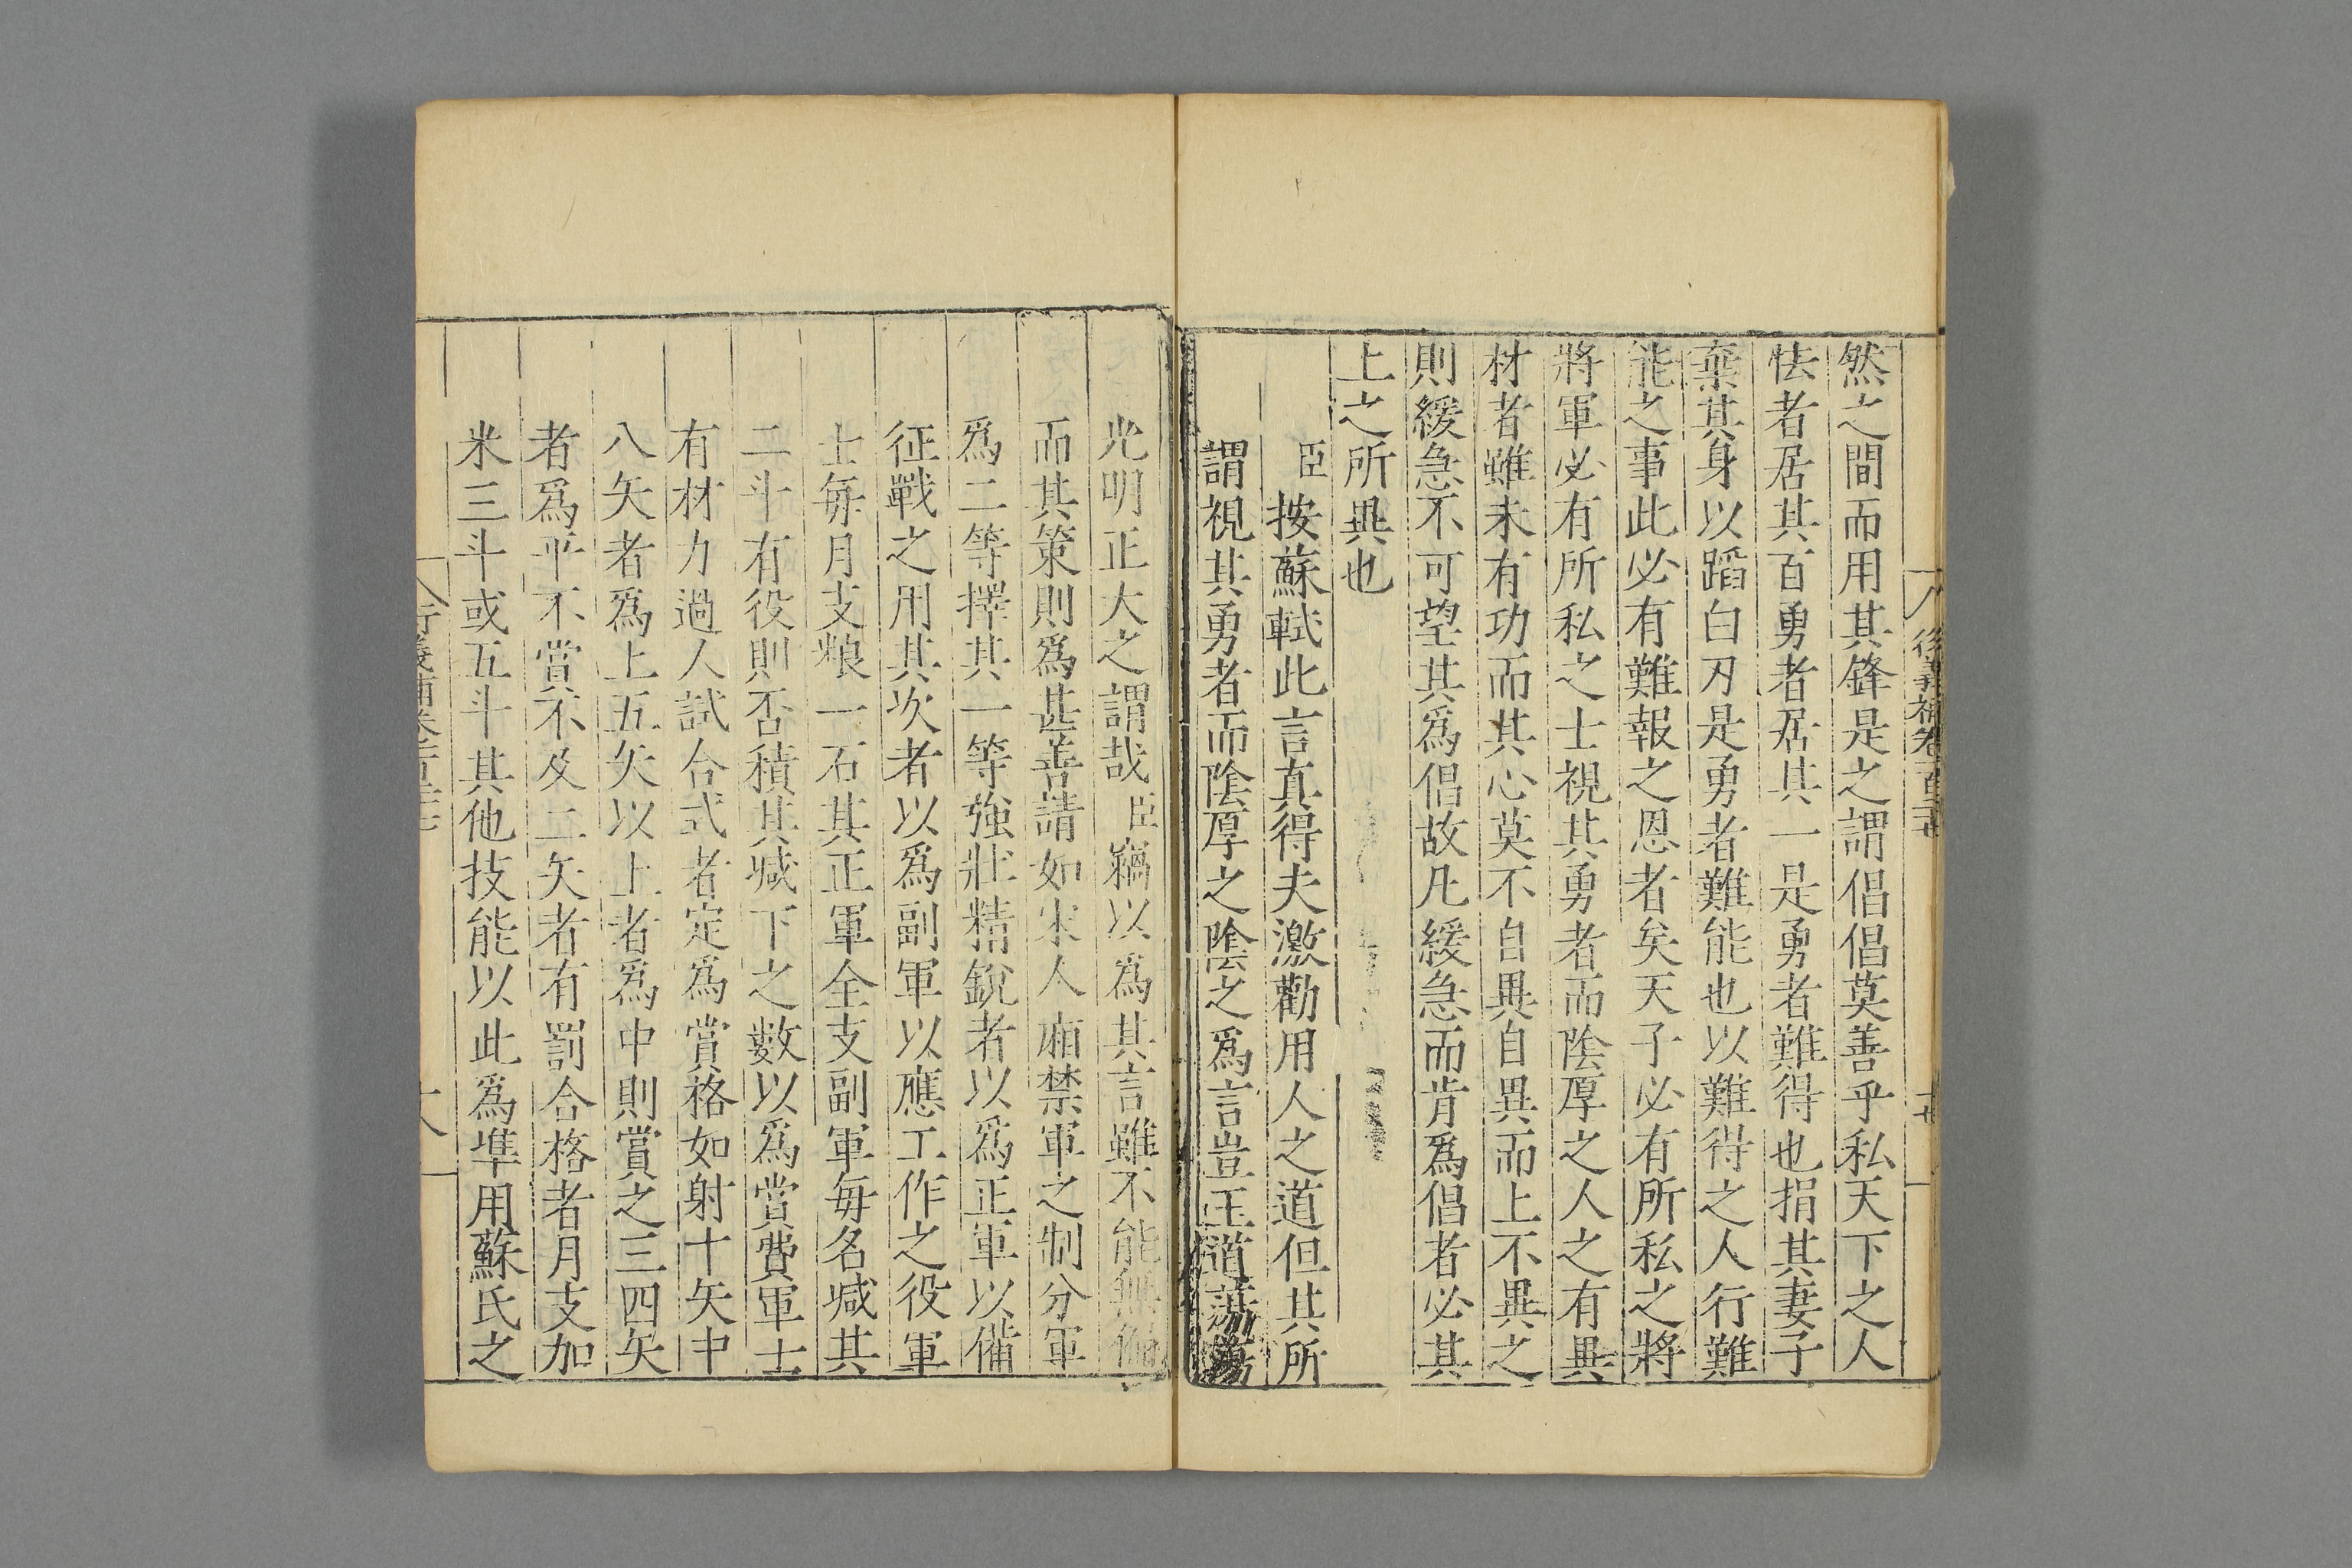 後義補卷一百三
然之間而用其鋒是之謂倡倡莫善乎私天下之人
怯者居其百勇者居其一是勇者難得也捐其妻子
棄其身以蹈白刃是勇者難能也以難得之人行難
能之事此必有難報之恩者矣天子必有所私之將
將軍必有所私之士視其勇者而陰厚之人之有異
材者雖未有功而其心莫不自異自異而上不異之
則緩急不可望其爲倡故凡緩急而肯爲倡者必其
上之所異也
臣按蘇軾此言真得夫激勸用人之道但其所
謂視其勇者而陰厚之陰之爲言豈王道蕩蕩
光明正大之謂哉臣竊以爲其言雖不能無偏
而其策則爲甚善請如宋人廂禁軍之制分軍
爲二等擇其一等強壯精銳者以爲正軍以備
征戰之用其次者以爲副軍以應工作之役軍
士每月支粮一石其正軍全支副軍每名減其
二斗有役則否積其減下之數以爲賞費軍士
有材力過人試合式者定爲賞格如射十矢中
八矢者爲上五矢以上者爲中則賞之三四矢
者爲平不賞不及二矢者有罰合格者月支加
米三斗或五斗其他技能以此爲準用蘇氏之